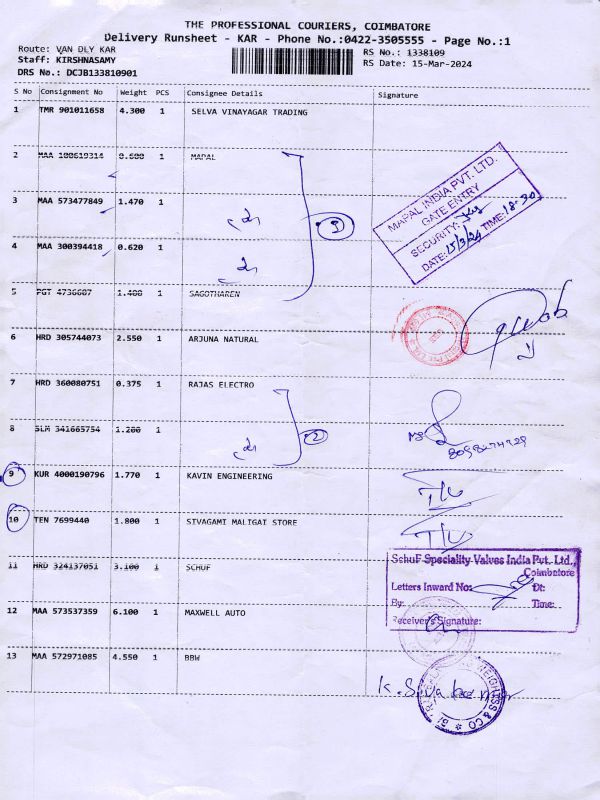 THE PROFESSIONAL COURIERS, COIMBATORE
Delivery Runsheet - KAR - Phone No.:0422-3505555 - Page No.:1
Route: VAN DLY KAR
RS No.: 1338109
Staff: KIRSHNASAMY
RS Date: 15-Mar-2024
DRS No.: DCJB133810901
S No Consignment No Weight PCS Consignee Details Signature
1 TMR 901011658 4.300 1 SELVA VINAYAGAR TRADING
2 MAA 100619314 0.600 1 MAPAL
3 MAA 573477849 1.470 1
4 MAA 300394418 0.620 1
3
MAPAL INDIA PVT. LTD.
GATE ENTRY
SECURITY:
DATE: 15/3/24 TIME: 18-30
5 PGT 4736607 1.400 1 SAGOTHAREN
6 HRD 305744073 2.550 1 ARJUNA NATURAL
7 HRD 360080751 0.375 1 RAJAS ELECTRO
8 SLM 341665754 1.200 1
2
9 KUR 4000190796 1.770 1 KAVIN ENGINEERING
10 TEN 7699440 1.800 1 SIVAGAMI MALIGAI STORE
11 HRD 324137051 3.100 1 SCHUF
SchuF Speciality Valves India Pvt. Ltd.,
Coimbatore
Letters Inward No: Dt:
By: Time:
Receiver's Signature:
12 MAA 573537359 6.100 1 MAXWELL AUTO
13 MAA 572971085 4.550 1 BBW
K. Sivakumar